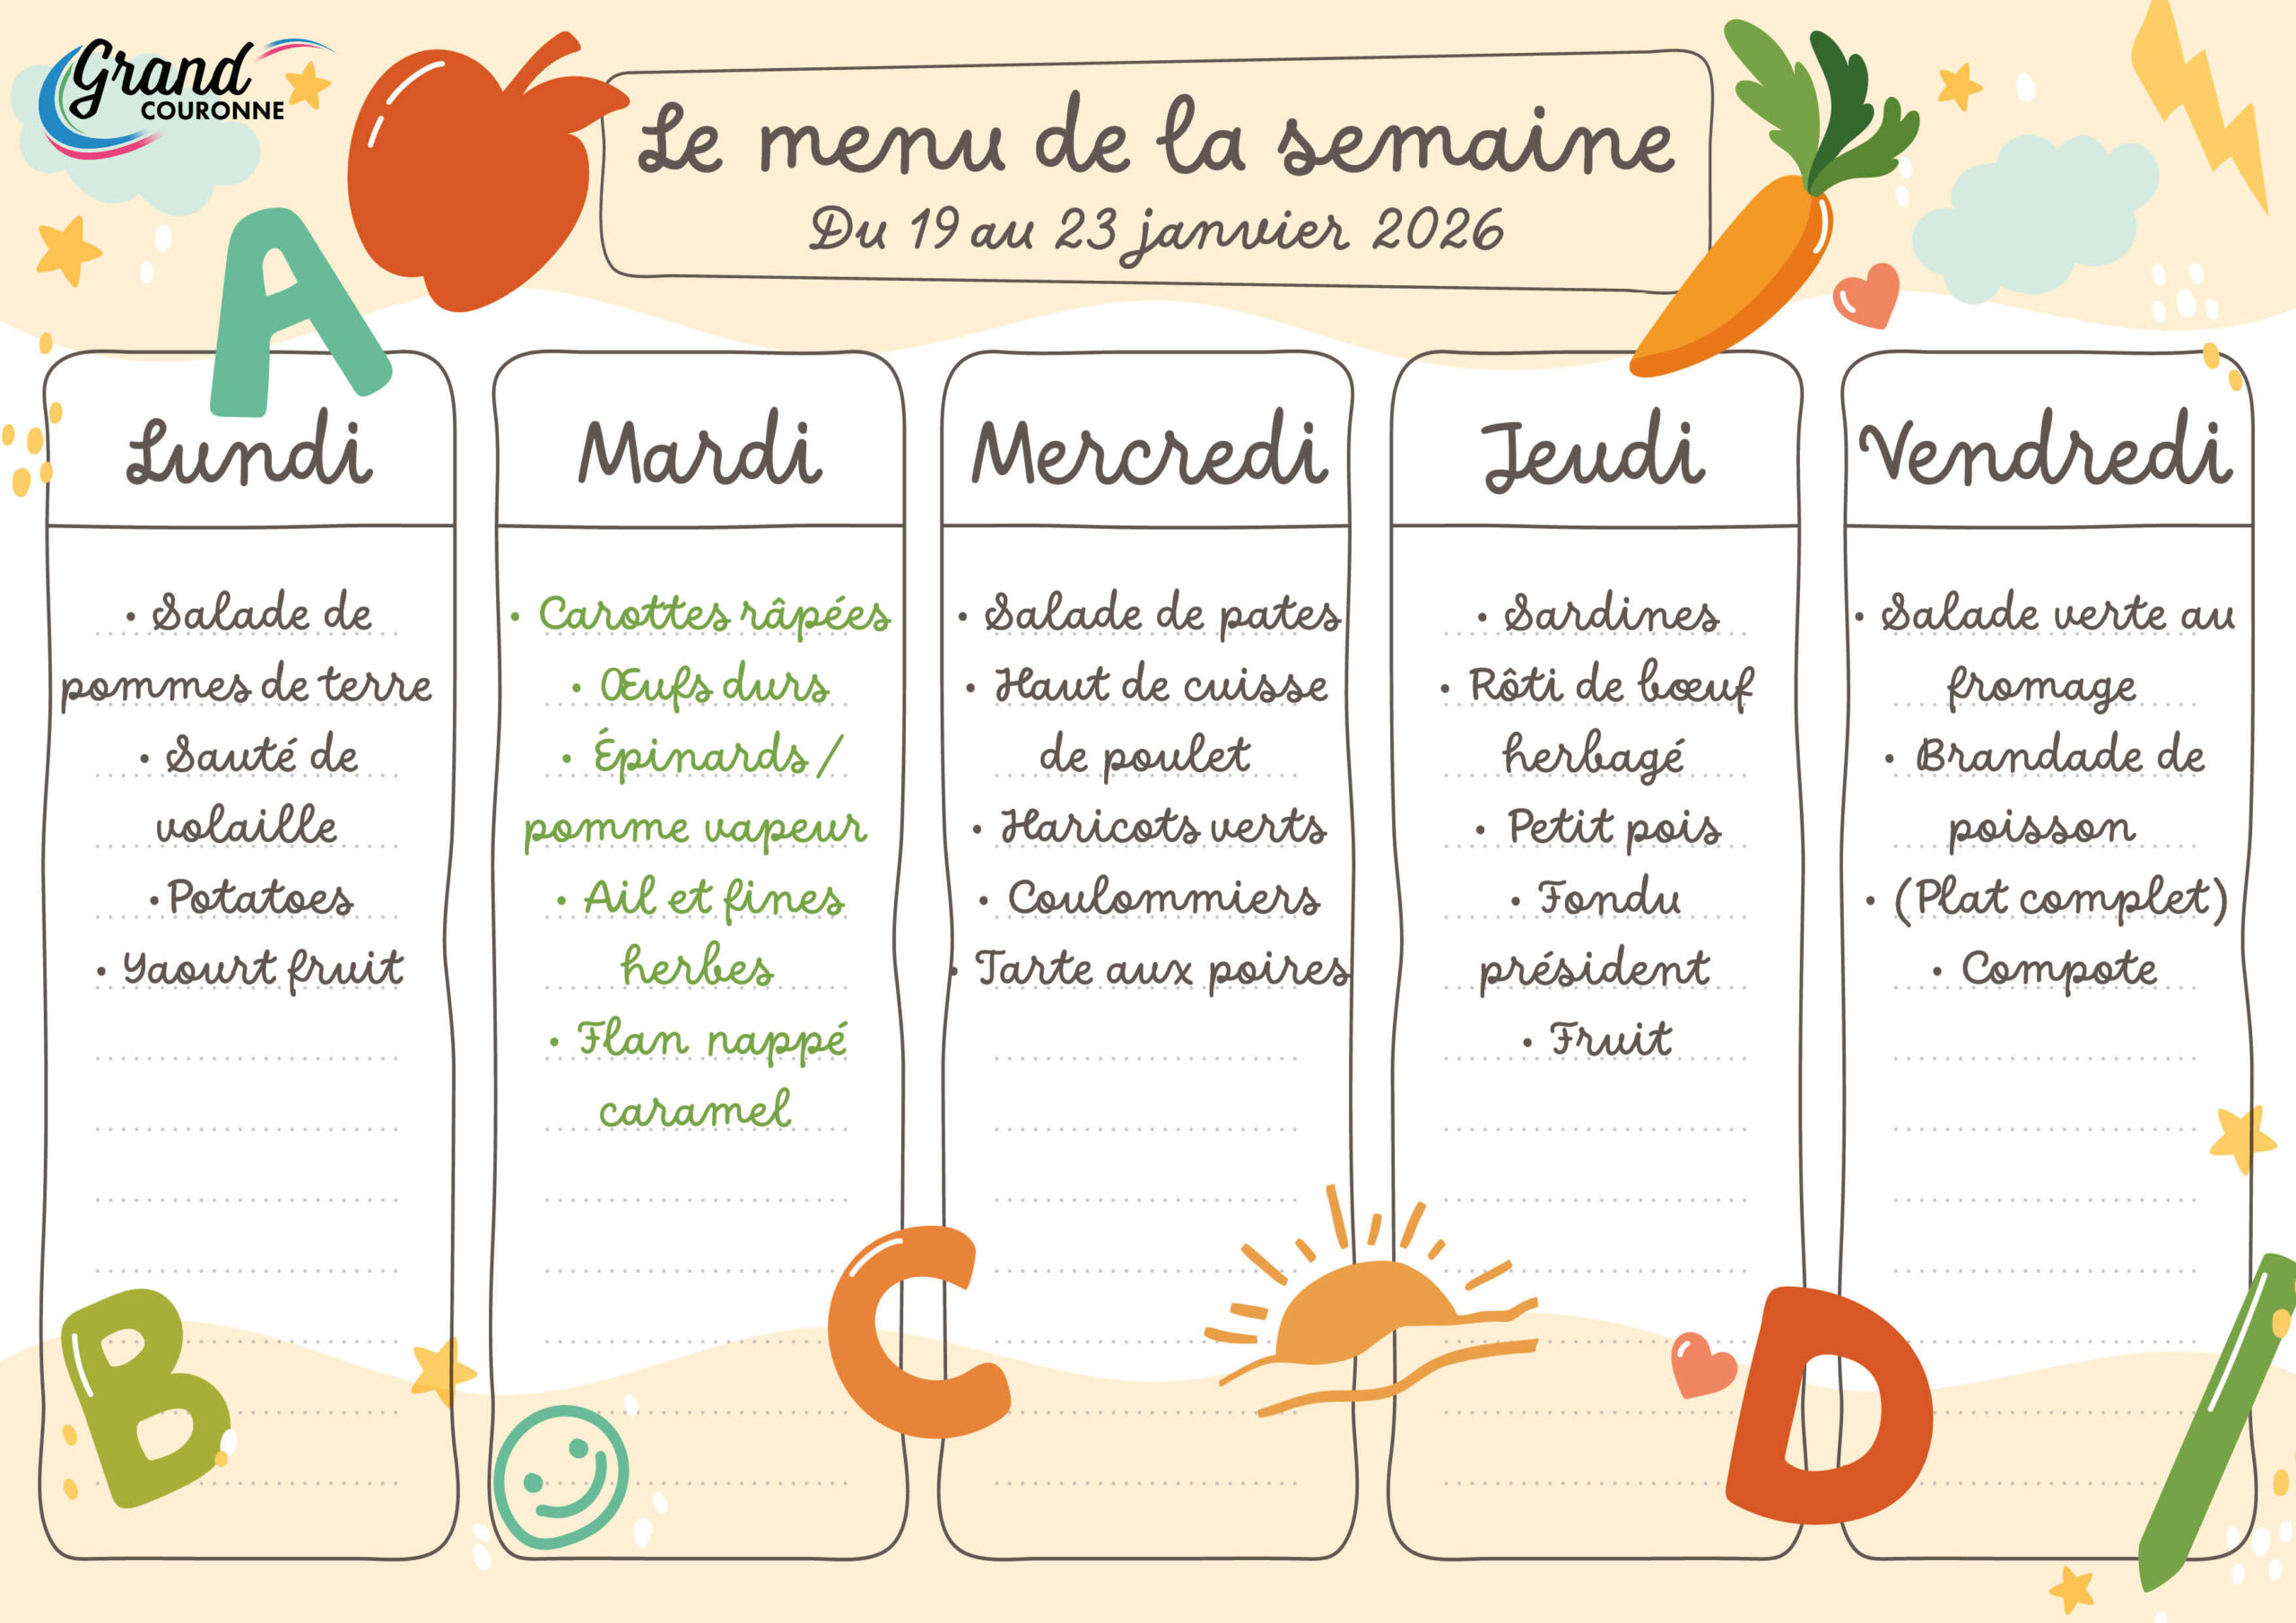 Grand
COURONNE
Le menu de la semaine
Du 19 au 23 janvier 2026
A
Lundi
• Salade de
pommes de terre
• Sauté de
volaille
• Potatoes
• Yaourt fruit
Mardi
• Carottes râpées
• Œufs durs
• Épinards/
pomme vapeur
• Ail et fines
herbes
• Flan nappé
caramel
Mercredi
• Salade de pates
• Haut de cuisse
de poulet
• Haricots verts
• Coulommiers
• Tarte aux poires
Jeudi
• Sardines
• Rôti de bœuf
herbagé
• Petit pois
• Fondu
président
• Fruit
Vendredi
• Salade verte au
fromage
• Brandade de
poisson
• (Plat complet)
• Compote
B
C
D